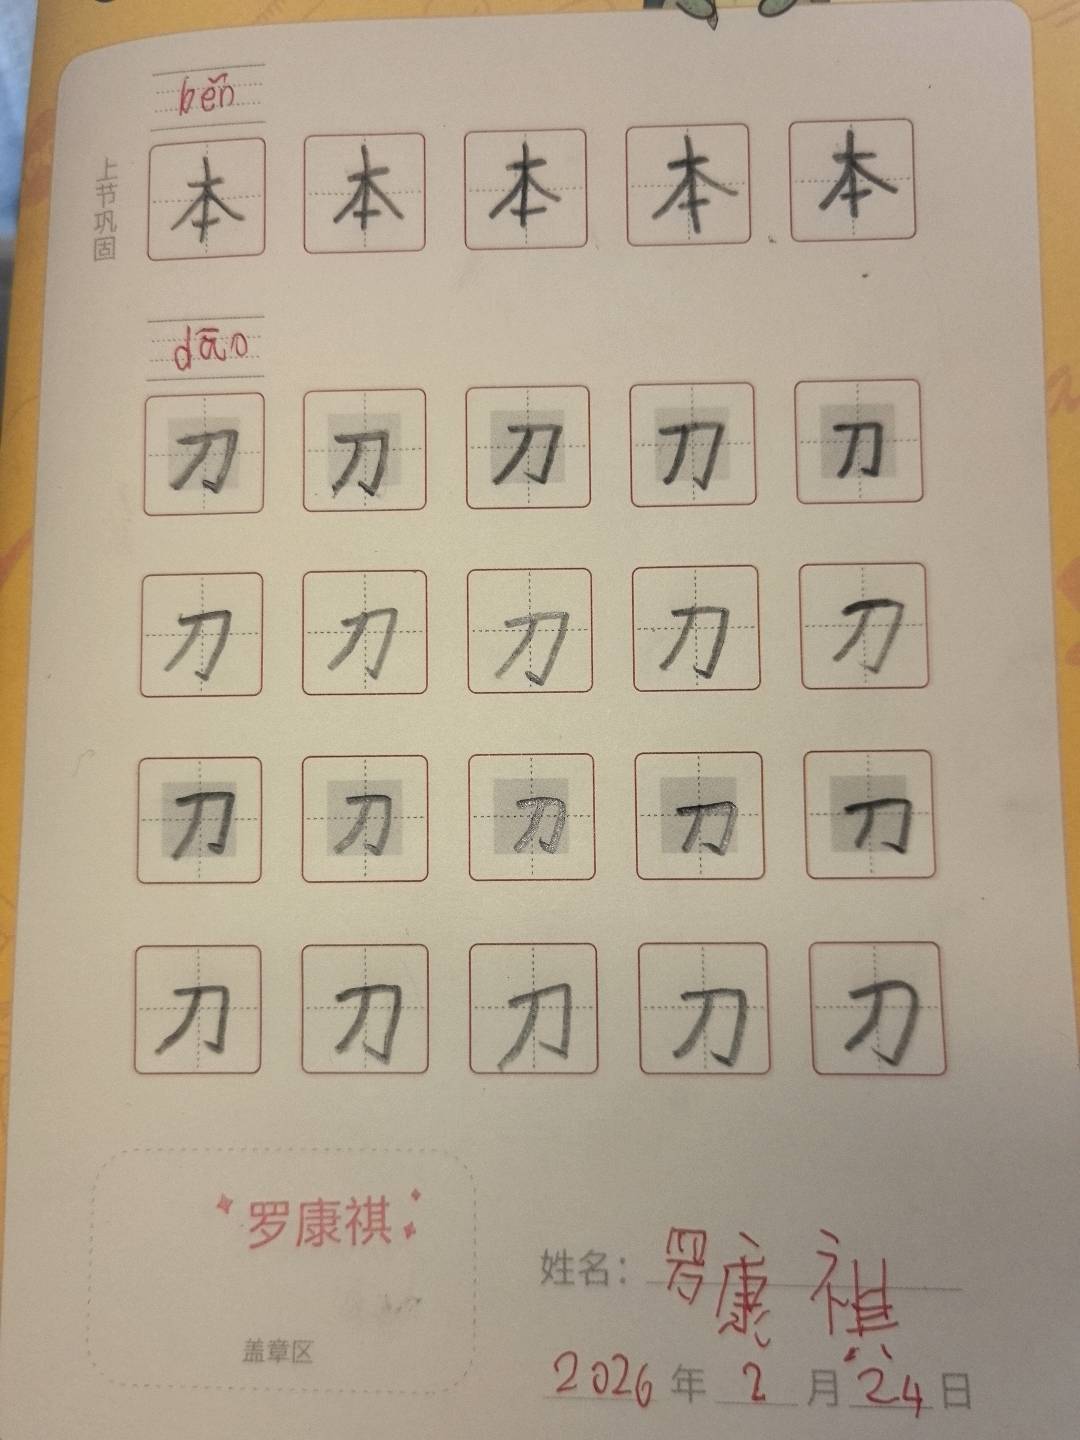 běn
上节巩固
本 本 本 本 本
dāo
刀 刀 刀 刀 刀
刀 刀 刀 刀 刀
刀 刀 刀 刀 刀
刀 刀 刀 刀 刀
罗康祺
盖章区
姓名：罗康祺
2026年2月24日